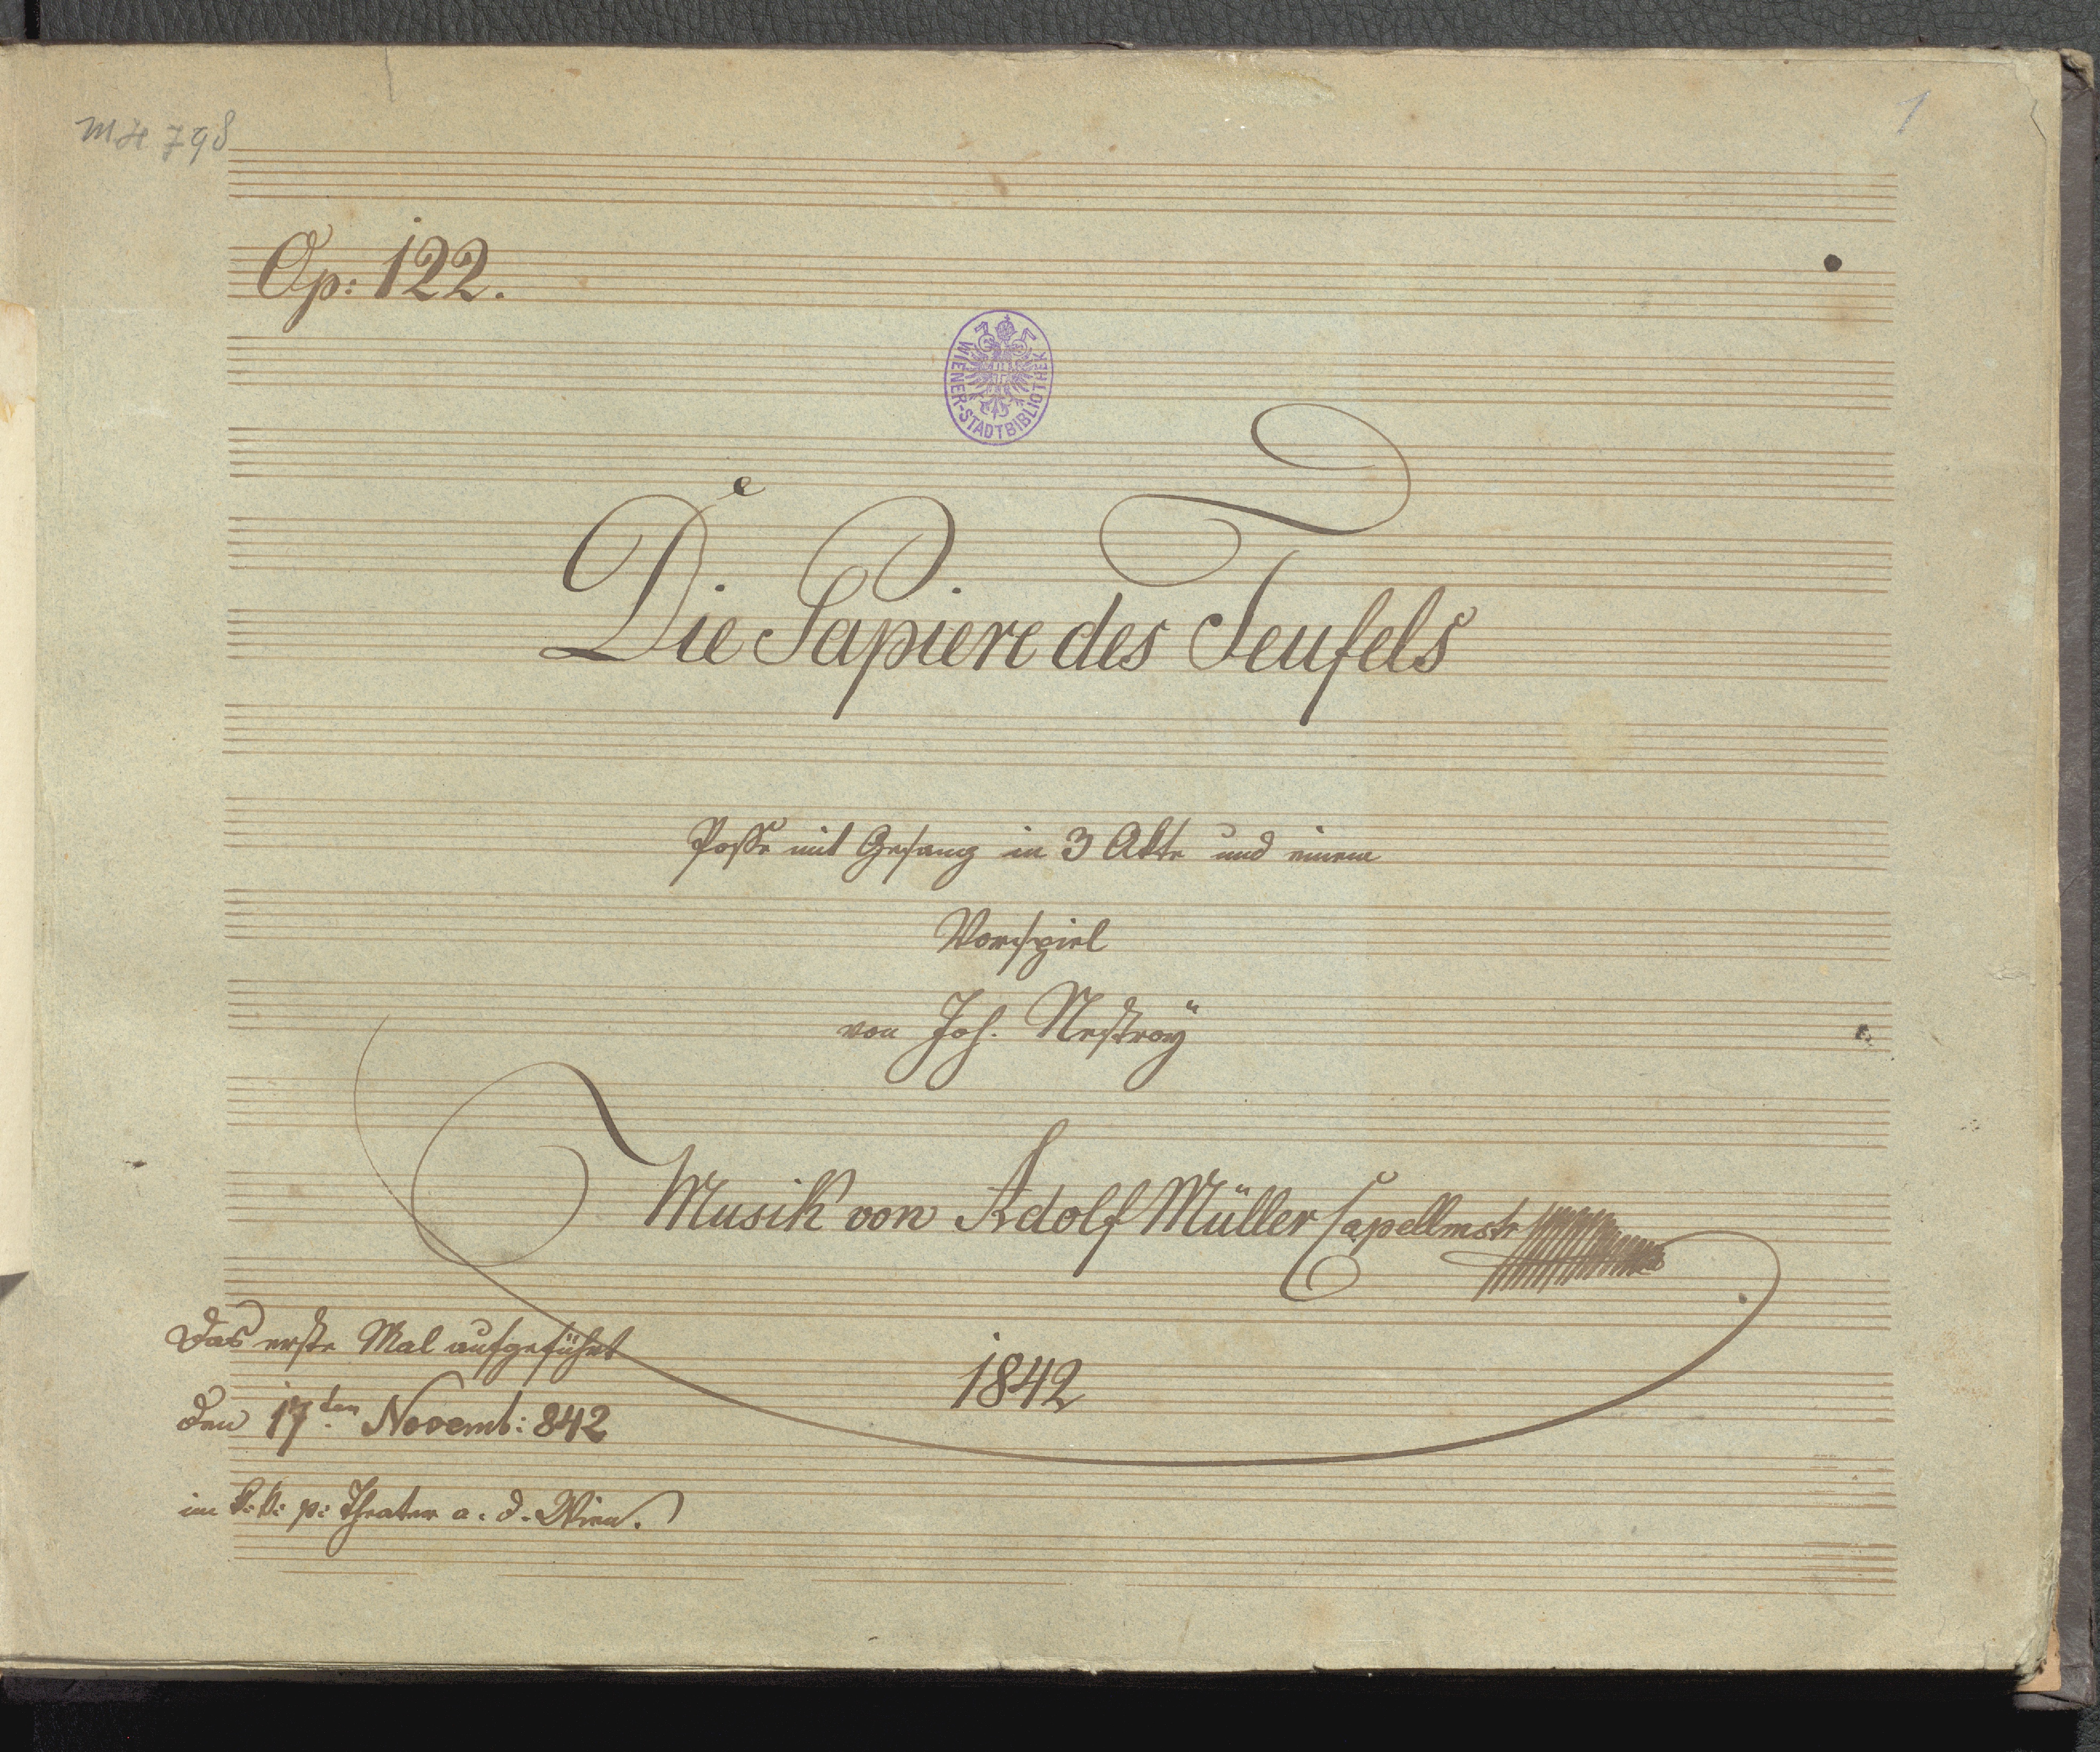 MH 798
1
Op: 122.
WIENER-STADTBIBLIOTHEK
Die Papiere des Teufels
Posse mit Gesang in 3 Akte und einem
Vorspiel
von Joh. Nestroÿ
Musik von Adolf Müller Capellmstr
Das erste Mal aufgeführt
1842
den 17ten Novemb: 842
im k: k: p: Theater a. d. Wien.